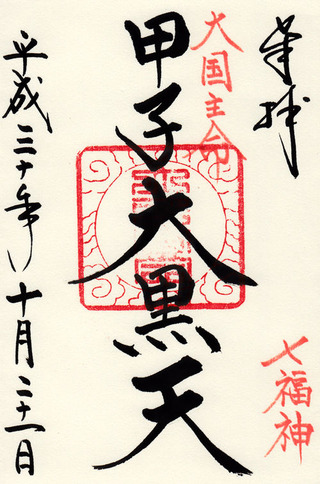 奉拝
七福神
大国主命
甲子大黒天
平成三十年十月二十一日